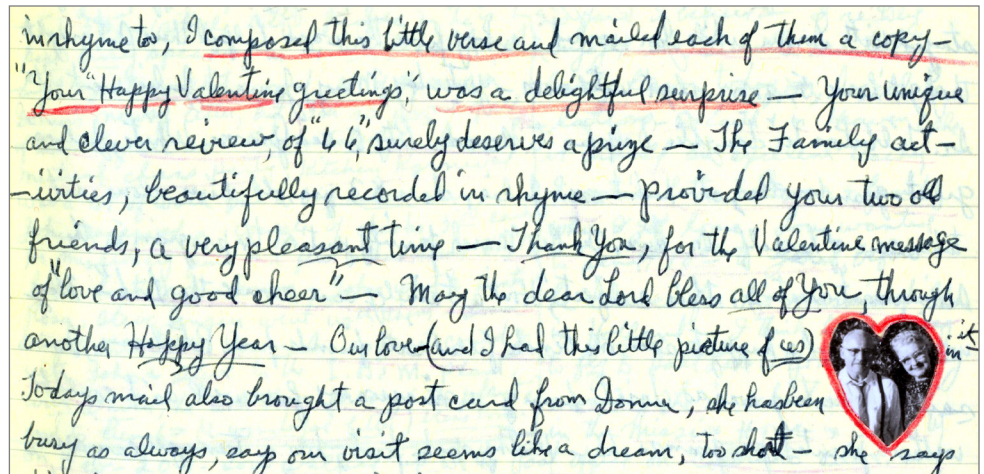 in rhyme too, I composed this little verse and mailed each of them a copy —
"Your "Happy Valentine greetings," was a delightful surprise — Your unique
and clever review, of "66," surely deserves a prize — The Family act-
-ivities, beautifully recorded in rhyme — provided your two old
friends, a very pleasant time — Thank You, for the Valentine message
of "love and good cheer" — May the dear Lord bless all of You, through
another Happy Year — Our love — (and I had this little picture of us) in it —
Todays mail also brought a post card from Donna, she has been
busy as always, says our visit seems like a dream, too short — she says